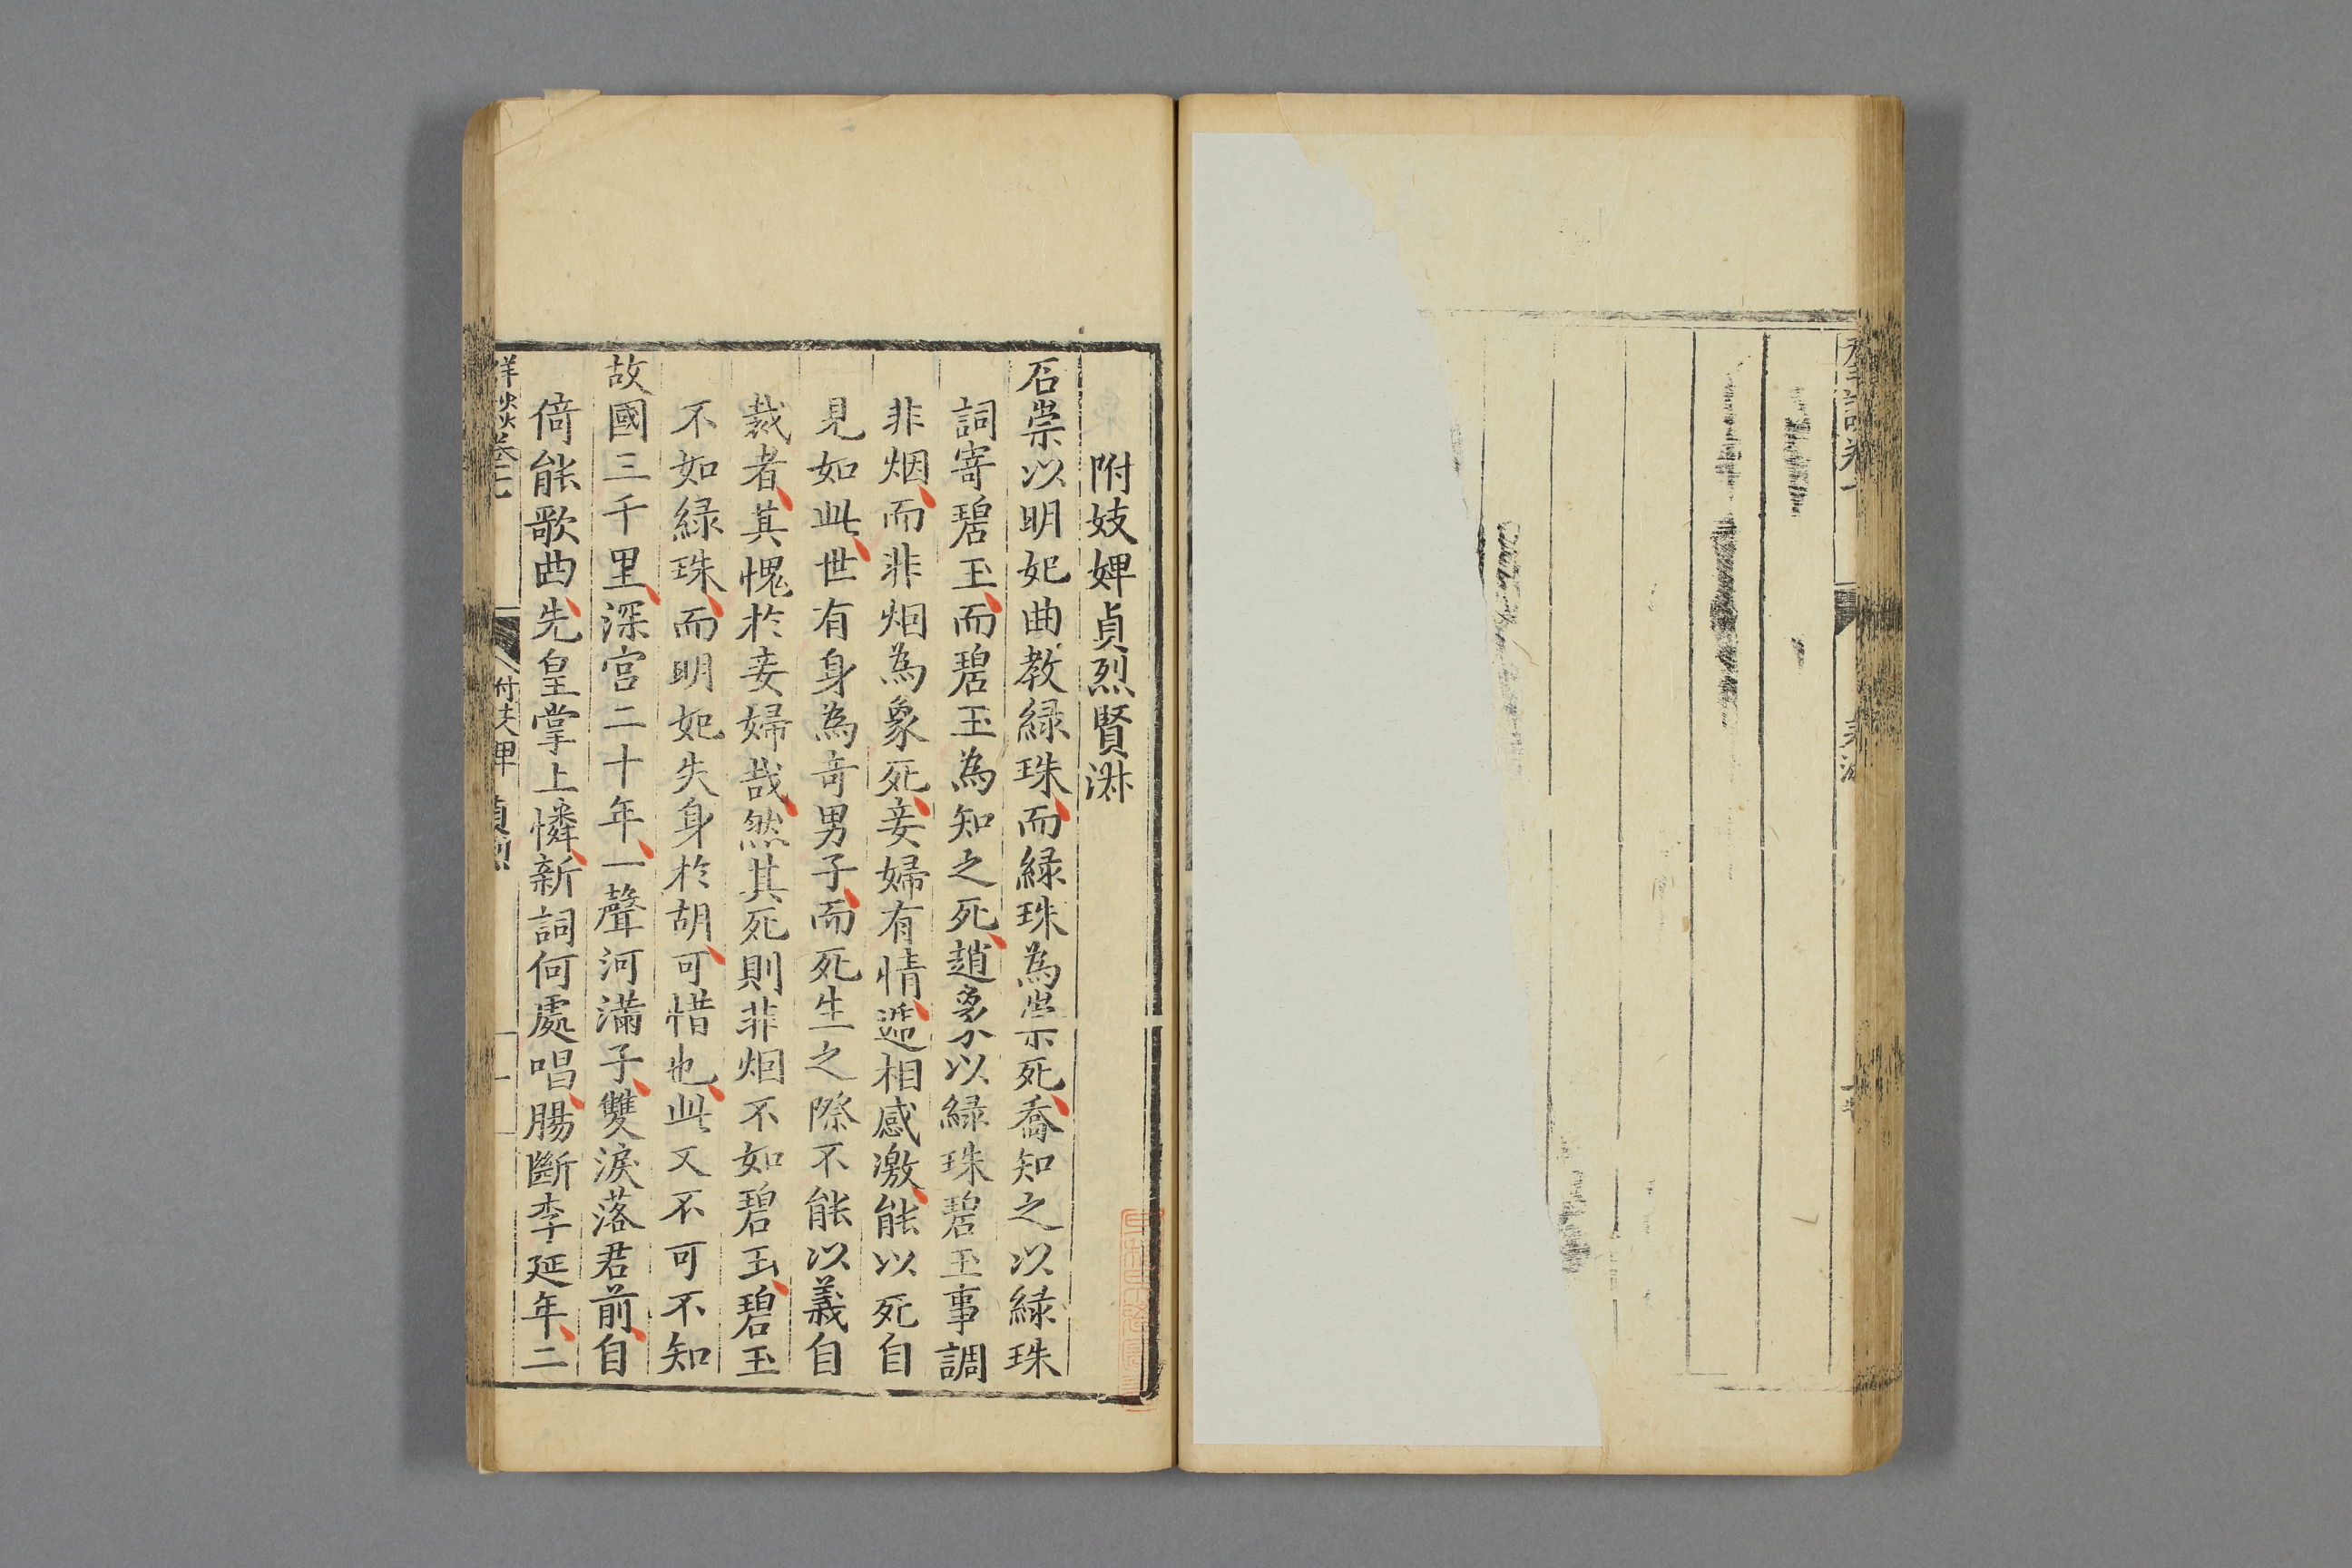 附妓婢貞烈賢淋
石崇以明妃曲教緑珠而緑珠為崇死喬知之以緑珠
詞寄碧玉而碧玉為知之死趙象以緑珠碧玉事調
非烟而非烟為象死妾婦有情遞相感激能以死自
見如此世有身為竒男子而死生之際不能以義自
裁者其愧於妾婦哉然其死則非烟不如碧玉碧玉
不如緑珠而明妃失身於胡可惜也此又不可不知
故國三千里深宮二十年一聲河滿子雙淚落君前自
倚能歌曲先皇掌上憐新詞何處唱腸斷李延年二